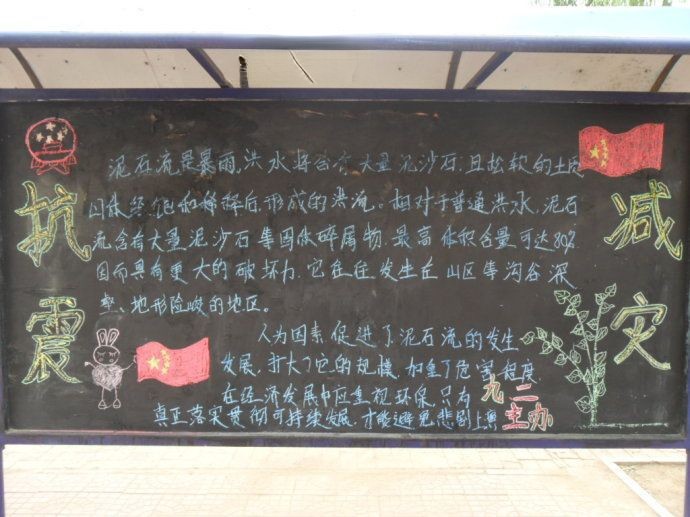 抗震
减灾
泥石流是暴雨,洪水将含有大量泥沙石,且松软的土质
因体经饱和稀释后,形成的洪流。相对于普通洪水,泥石
流含有大量泥沙石等固体碎屑物,最高体积含量可达80%
因而具有更大的破坏力,它往往发生在山区等沟谷深
壑、地形险峻的地区。
人为因素促进了泥石流的发生
发展,扩大了它的规模,加重了危害程度
在经济发展中应重视环保,只有
真正落实贯彻可持续发展,才能避免悲剧上
九二
主办